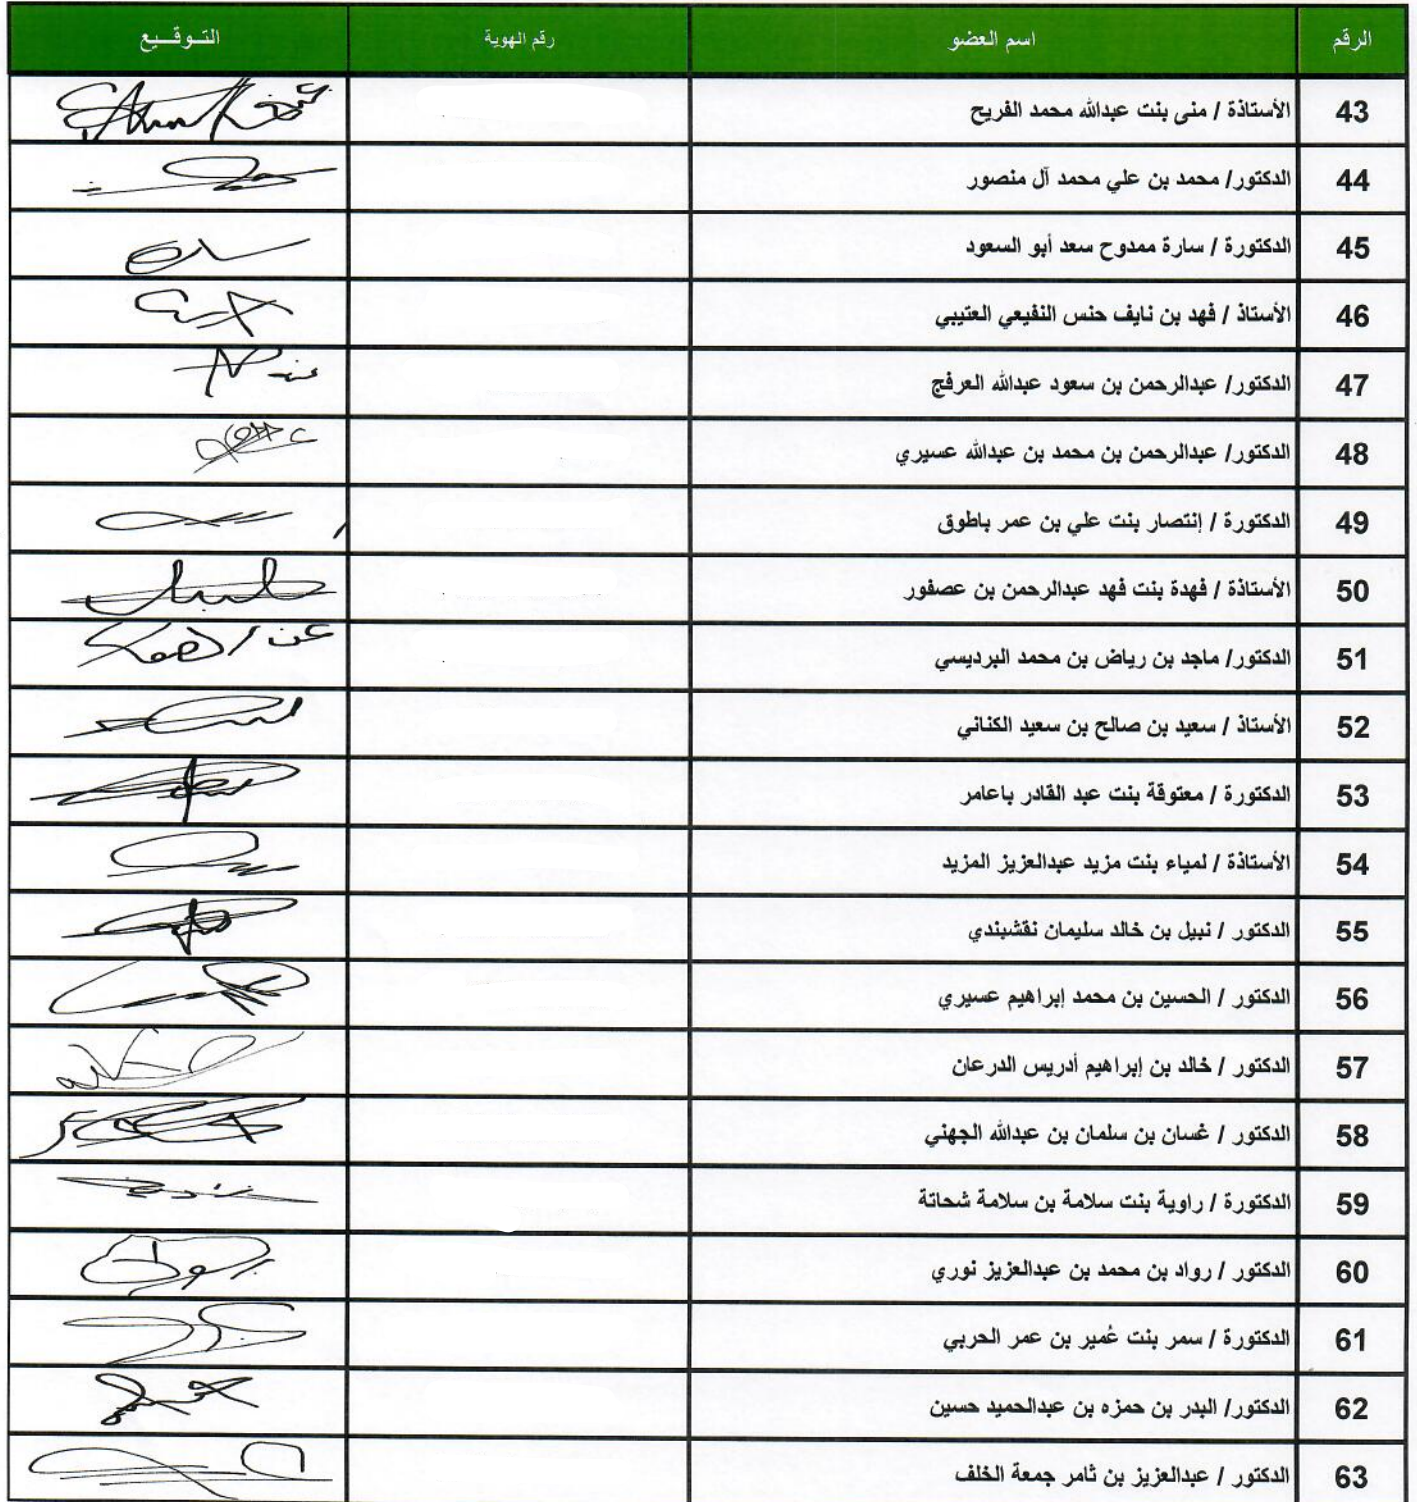 الرقم اسم العضو رقم الهوية التـوقـيع
43 الأستاذة / منى بنت عبدالله محمد الفريح
44 الدكتور/ محمد بن علي محمد آل منصور
45 الدكتورة / سارة ممدوح سعد أبو السعود
46 الأستاذ / فهد بن نايف حنس النفيعي العتيبي
47 الدكتور/ عبدالرحمن بن سعود عبدالله العرفج
48 الدكتور/ عبدالرحمن بن محمد بن عبدالله عسيري
49 الدكتورة / إنتصار بنت علي بن عمر باطوق
50 الأستاذة / فهدة بنت فهد عبدالرحمن بن عصفور
51 الدكتور/ ماجد بن رياض بن محمد البرديسي
52 الأستاذ / سعيد بن صالح بن سعيد الكناني
53 الدكتورة / معتوقة بنت عبد القادر باعامر
54 الأستاذة / لمياء بنت مزيد عبدالعزيز المزيد
55 الدكتور / نبيل بن خالد سليمان نقشبندي
56 الدكتور / الحسين بن محمد إبراهيم عسيري
57 الدكتور / خالد بن إبراهيم أدريس الدرعان
58 الدكتور / غسان بن سلمان بن عبدالله الجهني
59 الدكتورة / راوية بنت سلامة بن سلامة شحاتة
60 الدكتور / رواد بن محمد بن عبدالعزيز نوري
61 الدكتورة / سمر بنت عُمير بن عمر الحربي
62 الدكتور/ البدر بن حمزه بن عبدالحميد حسين
63 الدكتور / عبدالعزيز بن ثامر جمعة الخلف